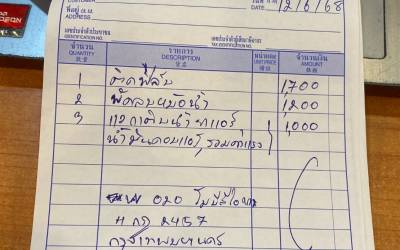 CUSTOMER
ที่อยู่
ADDRESS
วันที่ 12/6/68
DATE
เลขประจำตัวประชาชน
IDENTIFICATION NO.
เลขประจำตัวผู้เสียภาษีอากร
TAX IDENTIFICATION NO.
จำนวน รายการ หน่วยละ จำนวนเงิน
QUANTITY DESCRIPTION UNIT PRICE AMOUNT
1 ติดฟิล์ม 1,700
2 พัดลมหม้อน้ำ 1,200
3 1,000
น้ำมันคอมแอร์, รวมค่าแรง
020
4 กฎ 2457
กรุงเทพมหานคร